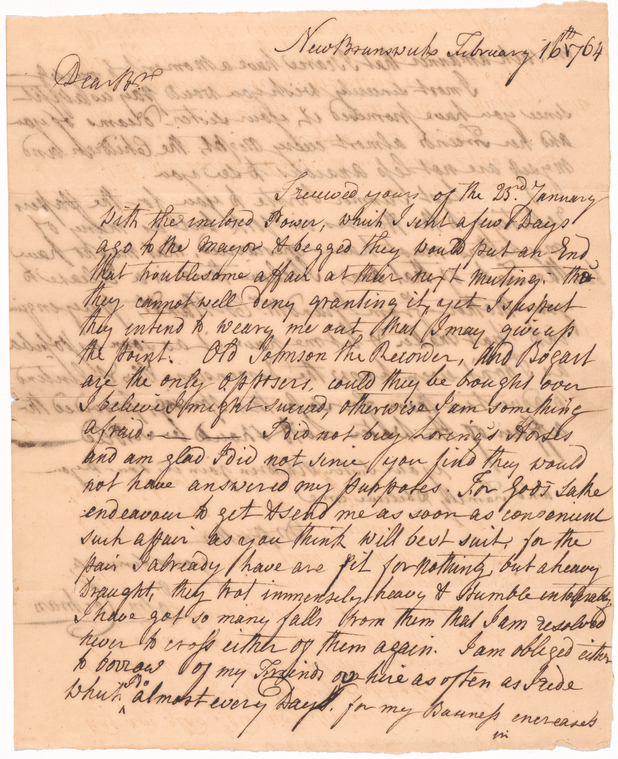 New Brunswick February 16th 1764
Dear Sir
I received yours of the 23rd January
with the inclosed Power, which I sent a few Days
ago to the Mayor & begged they would put an End
that troublesome affair at their next meeting. tho
they cannot well deny granting it, yet I suspect
they intend to weary me out, that I may give up
the point. Old Johnson the Recorder, and Bogart
are the only opposers, could they be bought over
I believe I might succeed, otherwise I am something
afraid. I did not buy Loring's Horses
and am glad I did not since you find they would
not have answered my purposes. For Gods sake
endeavour to get & send me as soon as convenient
such affair as you think will best suit, for the
pair I already have are fit for nothing, but a heavy
Draught, they trot immensely heavy & stumble
I have got so many falls from them that I am resolved
never to cross either of them again. I am obliged either
to borrow of my Friends or hire as often as I ride
which I do almost every Day, for my Business encreases
in